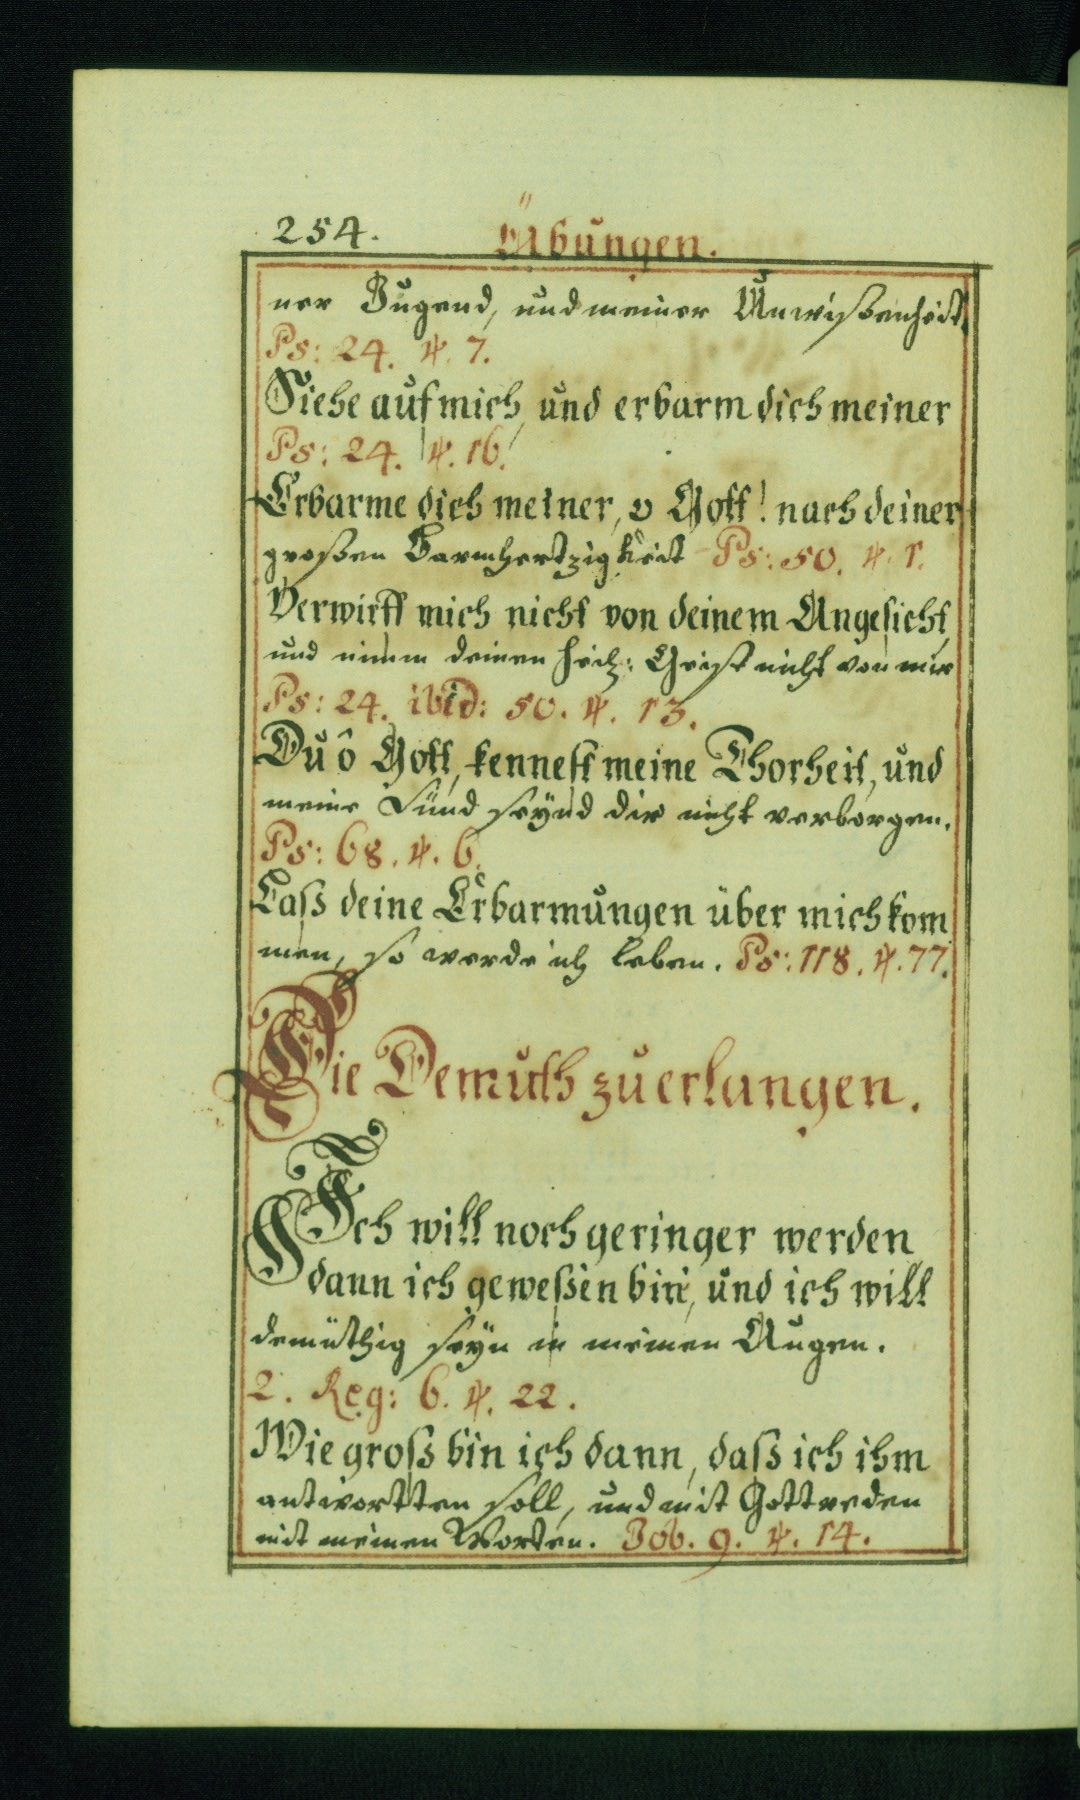 254. Übungen.
ner Jugend, und meiner Unwißenheit.
Ps: 24. ℣. 7.
Siehe auf mich, und erbarm dich meiner
Ps: 24. ℣. 16.
Erbarme dich meiner, o Gott! nach deiner
großen Barmhertzigkeit Ps: 50. ℣. 1.
Verwirff mich nicht von deinem Angesicht,
und nimm deinen heil: Geist nicht von mir
Ps: 24. ibid: 50. ℣. 13.
Du ô Gott, kennest meine Thorheit, und
meine Sünd seÿnd dir nicht verborgen.
Ps: 68. ℣. 6.
Laß deine Erbarmungen über mich kom
men, so werde ich leben. Ps: 118. ℣. 77.
Die Demuth zu erlangen.
Ich will noch geringer werden
dann ich geweßen bin, und ich will
demüthig seÿn in meinen Augen.
2. Reg: 6. ℣. 22.
Wie groß bin ich dann, daß ich ihm
antwortten soll, und mit Gott reden
mit meinen Worten. Job. 9. ℣. 14.